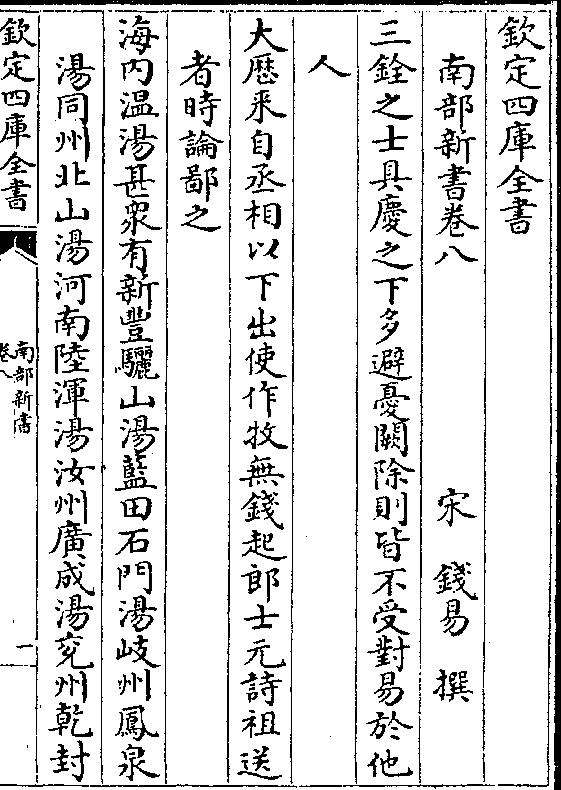 欽定四庫全書
南部新書卷八
宋 錢易 撰
三銓之士具慶之下多避憂闕除則皆不受對易於他
人
大厯来自丞相以下出使作牧無錢起郎士元詩祖送
者時論鄙之
海内温湯甚衆有新豐驪山湯藍田石門湯岐州鳳泉
湯同州北山湯河南陸渾湯汝州廣成湯兖州乾封
欽定四庫全書
南部新書
卷八
一